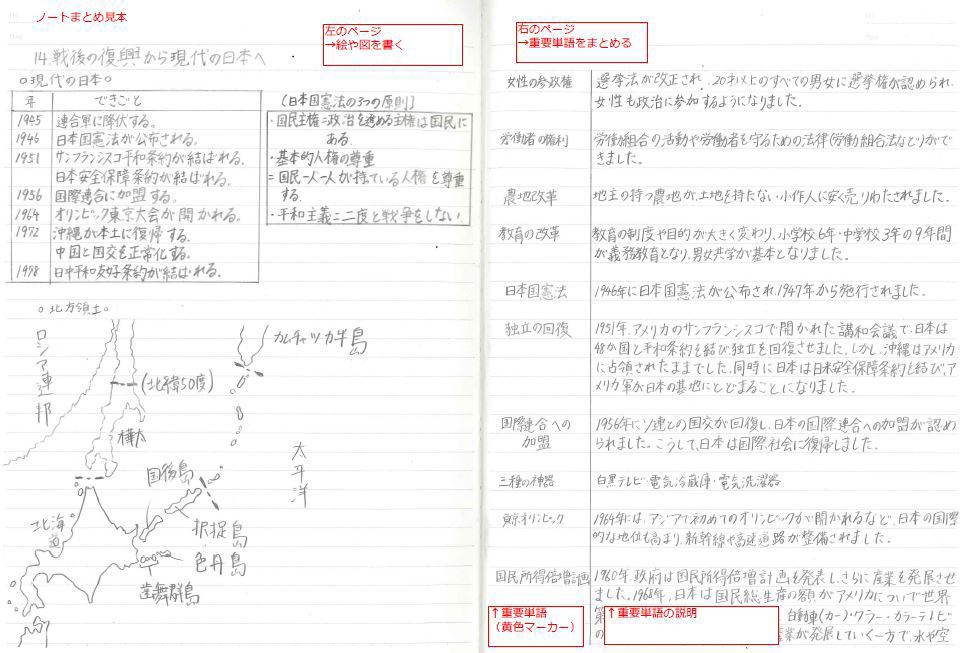 ノートまとめ見本
左のページ
→絵や図を書く
14.戦後の復興から現代の日本へ
○現代の日本○
年 できごと
1945 連合軍に降伏する。
1946 日本国憲法が公布される。
1951 サンフランシスコ平和条約が結ばれる。
日本安全保障条約が結ばれる。
1956 国際連合に加盟する。
1964 オリンピック東京大会が開かれる。
1972 沖縄が本土に復帰する。
中国と国交を正常化する。
1978 日中平和友好条約が結ばれる。
[日本国憲法の3つの原則]
・国民主権=政治を進める主権は国民に
ある.
・基本的人権の尊重
=国民一人一人が持っている人権を尊重
する.
・平和主義=二度と戦争をしない
○北方領土○
ロシア連邦
カムチャッカ半島
(北緯50度)
樺太
太平洋
国後島
北海道
択捉島
色丹島
歯舞群島
右のページ
→重要単語をまとめる
女性の参政権 選挙法が改正され、20才以上のすべての男女に選挙権が認められ、
女性も政治に参加するようになりました。
労働者の権利 労働組合の活動や労働者を守るための法律(労働組合法など)ができました。
農地改革 地主の持つ農地が、土地を持たない小作人に安く売りわたされました。
教育の改革 教育の制度や目的が大きく変わり、小学校6年・中学校3年の9年間
が義務教育となり、男女共学が基本となりました。
日本国憲法 1946年に日本国憲法が公布され、1947年から施行されました。
独立の回復 1951年、アメリカのサンフランシスコで開かれた講和会議で、日本は
48か国と平和条約を結び、独立を回復させました。しかし、沖縄はアメリカ
に占領されたままでした。同時に日本は日米安全保障条約を結び、ア
メリカ軍が日本の基地にとどまることになりました。
国際連合への
加盟
1956年にソ連との国交が回復し、日本の国際連合への加盟が認め
られました。こうして、日本は国際社会に復帰しました。
三種の神器 白黒テレビ・電気冷蔵庫・電気洗濯器
東京オリンピック 1964年には、アジアで初めてのオリンピックが開かれるなど、日本の国際
的な地位も高まり、新幹線や高速道路が整備されました。
国民所得倍増計画 1960年、政府は国民所得倍増計画を発表し、さらに産業を発展させ
ました。1968年、日本は国民総生産の額がアメリカについで世界
第
自動車(カー)・クーラー・カラーテレビ
の
産業が発展していく一方で、水や空
↑重要単語
(黄色マーカー)
↑重要単語の説明